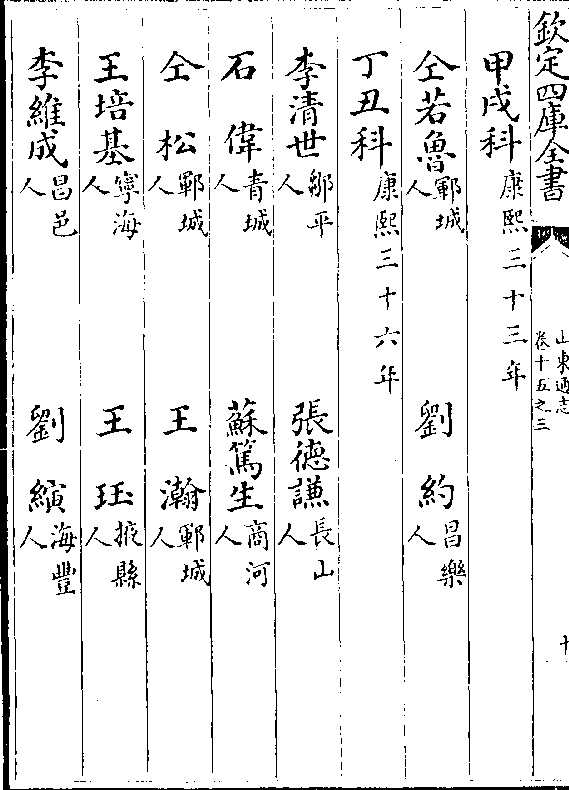 欽定四庫全書
山東通志
卷十五之三
十
甲戌科康熙三十三年
仝若魯鄆城人
劉約昌樂人
丁丑科康熙三十六年
李清世鄒平人
張德謙長山人
石偉青城人
蘇篤生商河人
仝松鄆城人
王瀚鄆城人
王培基寧海人
王珏掖縣人
李維成昌邑人
劉縯海豐人